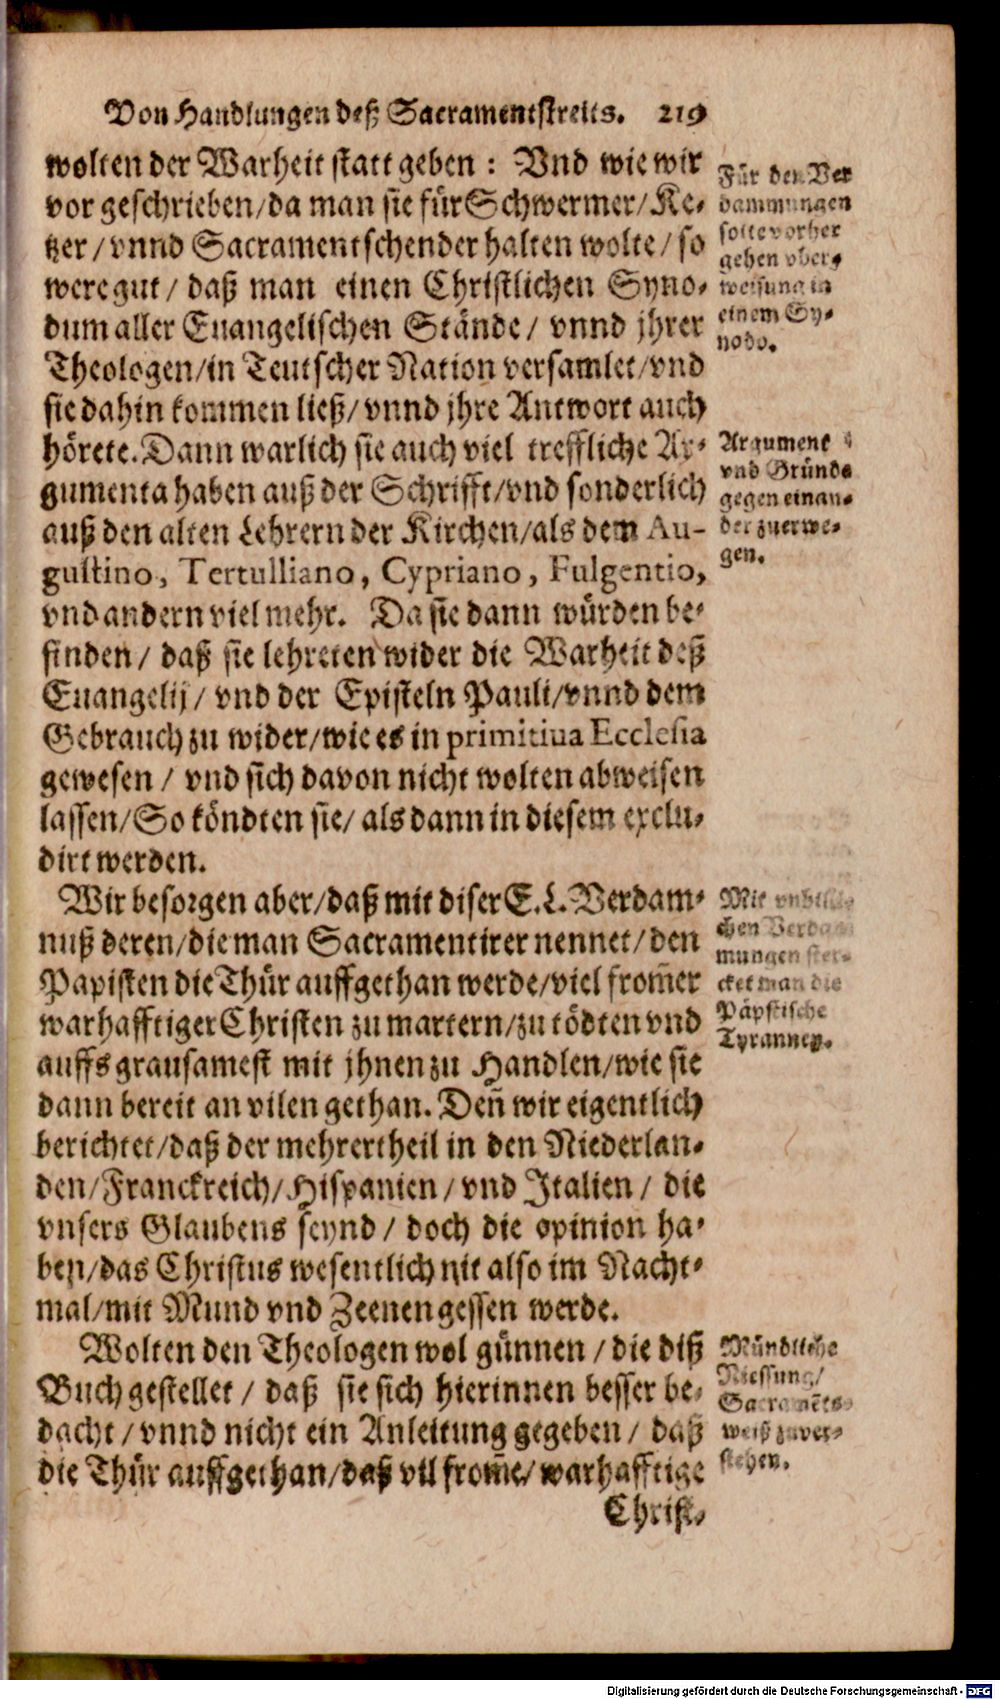 Von Handlungen deß Sacramentstreits. 219
wolten der Warheit statt geben : Vnd wie wir
vor geschrieben/da man sie für Schwermer/Ke⸗
tzer/vnnd Sacramentschender halten wolte/so
were gut/ daß man einen Christlichen Syno⸗
dum aller Euangelischen Stände/ vnnd jhrer
Theologen/in Teutscher Nation versamlet/vnd
sie dahin kommen ließ/vnnd jhre Antwort auch
hörete. Dann warlich sie auch viel treffliche Ar⸗
gumenta haben auß der Schrifft/vnd sonderlich
auß den alten Lehrern der Kirchen/als dem Au-
gustino, Tertulliano, Cypriano, Fulgentio,
vnd andern viel mehr. Da sie dann würden be⸗
finden/ daß sie lehreten wider die Warheit deß
Euangelij/ vnd der Episteln Pauli/vnnd dem
Gebrauch zu wider/wie es in primitiua Ecclesia
gewesen/ vnd sich davon nicht wolten abweisen
lassen/So köndten sie/ als dann in diesem exclu⸗
dirt werden.
Wir besorgen aber/daß mit diser E.L. Verdam⸗
nuß deren/die man Sacramentirer nennet/den
Papisten die Thür auffgethan werde/viel from̃er
warhafftiger Christen zu martern/zu tödten vnd
auffs grausamest mit jhnen zu Handlen/wie sie
dann bereit an vilen gethan. Deñ wir eigentlich
berichtet/daß der mehrertheil in den Niederlan⸗
den/Franckreich/Hispanien/vnd Italien/ die
vnsers Glaubens seynd/ doch die opinion ha⸗
ben/das Christus wesentlich nit also im Nacht⸗
mal/mit Mund vnd Zeenen gessen werde.
Wolten den Theologen wol günnen/die diß
Buch gestellet/ daß sie sich hierinnen besser be⸗
dacht/vnnd nicht ein Anleitung gegeben/ daß
die Thür auffgethan/daß vil from̃e/warhafftige
Christ⸗
Für den Ver
dammungen
solte vorher
gehen vber⸗
weisung in
einem Sy⸗
nodo.
Argument
vnd Gründe
gegen einan⸗
der zuerwe⸗
gen.
Mit vnbilli⸗
chen Verdam
mungen ster⸗
cket man die
Päpstische
Tyranney.
Mündliche
Niessung/
Sacramẽts⸗
weiß zuver⸗
stehen.
Digitalisierung gefördert durch die Deutsche Forschungsgemeinschaft - DFG